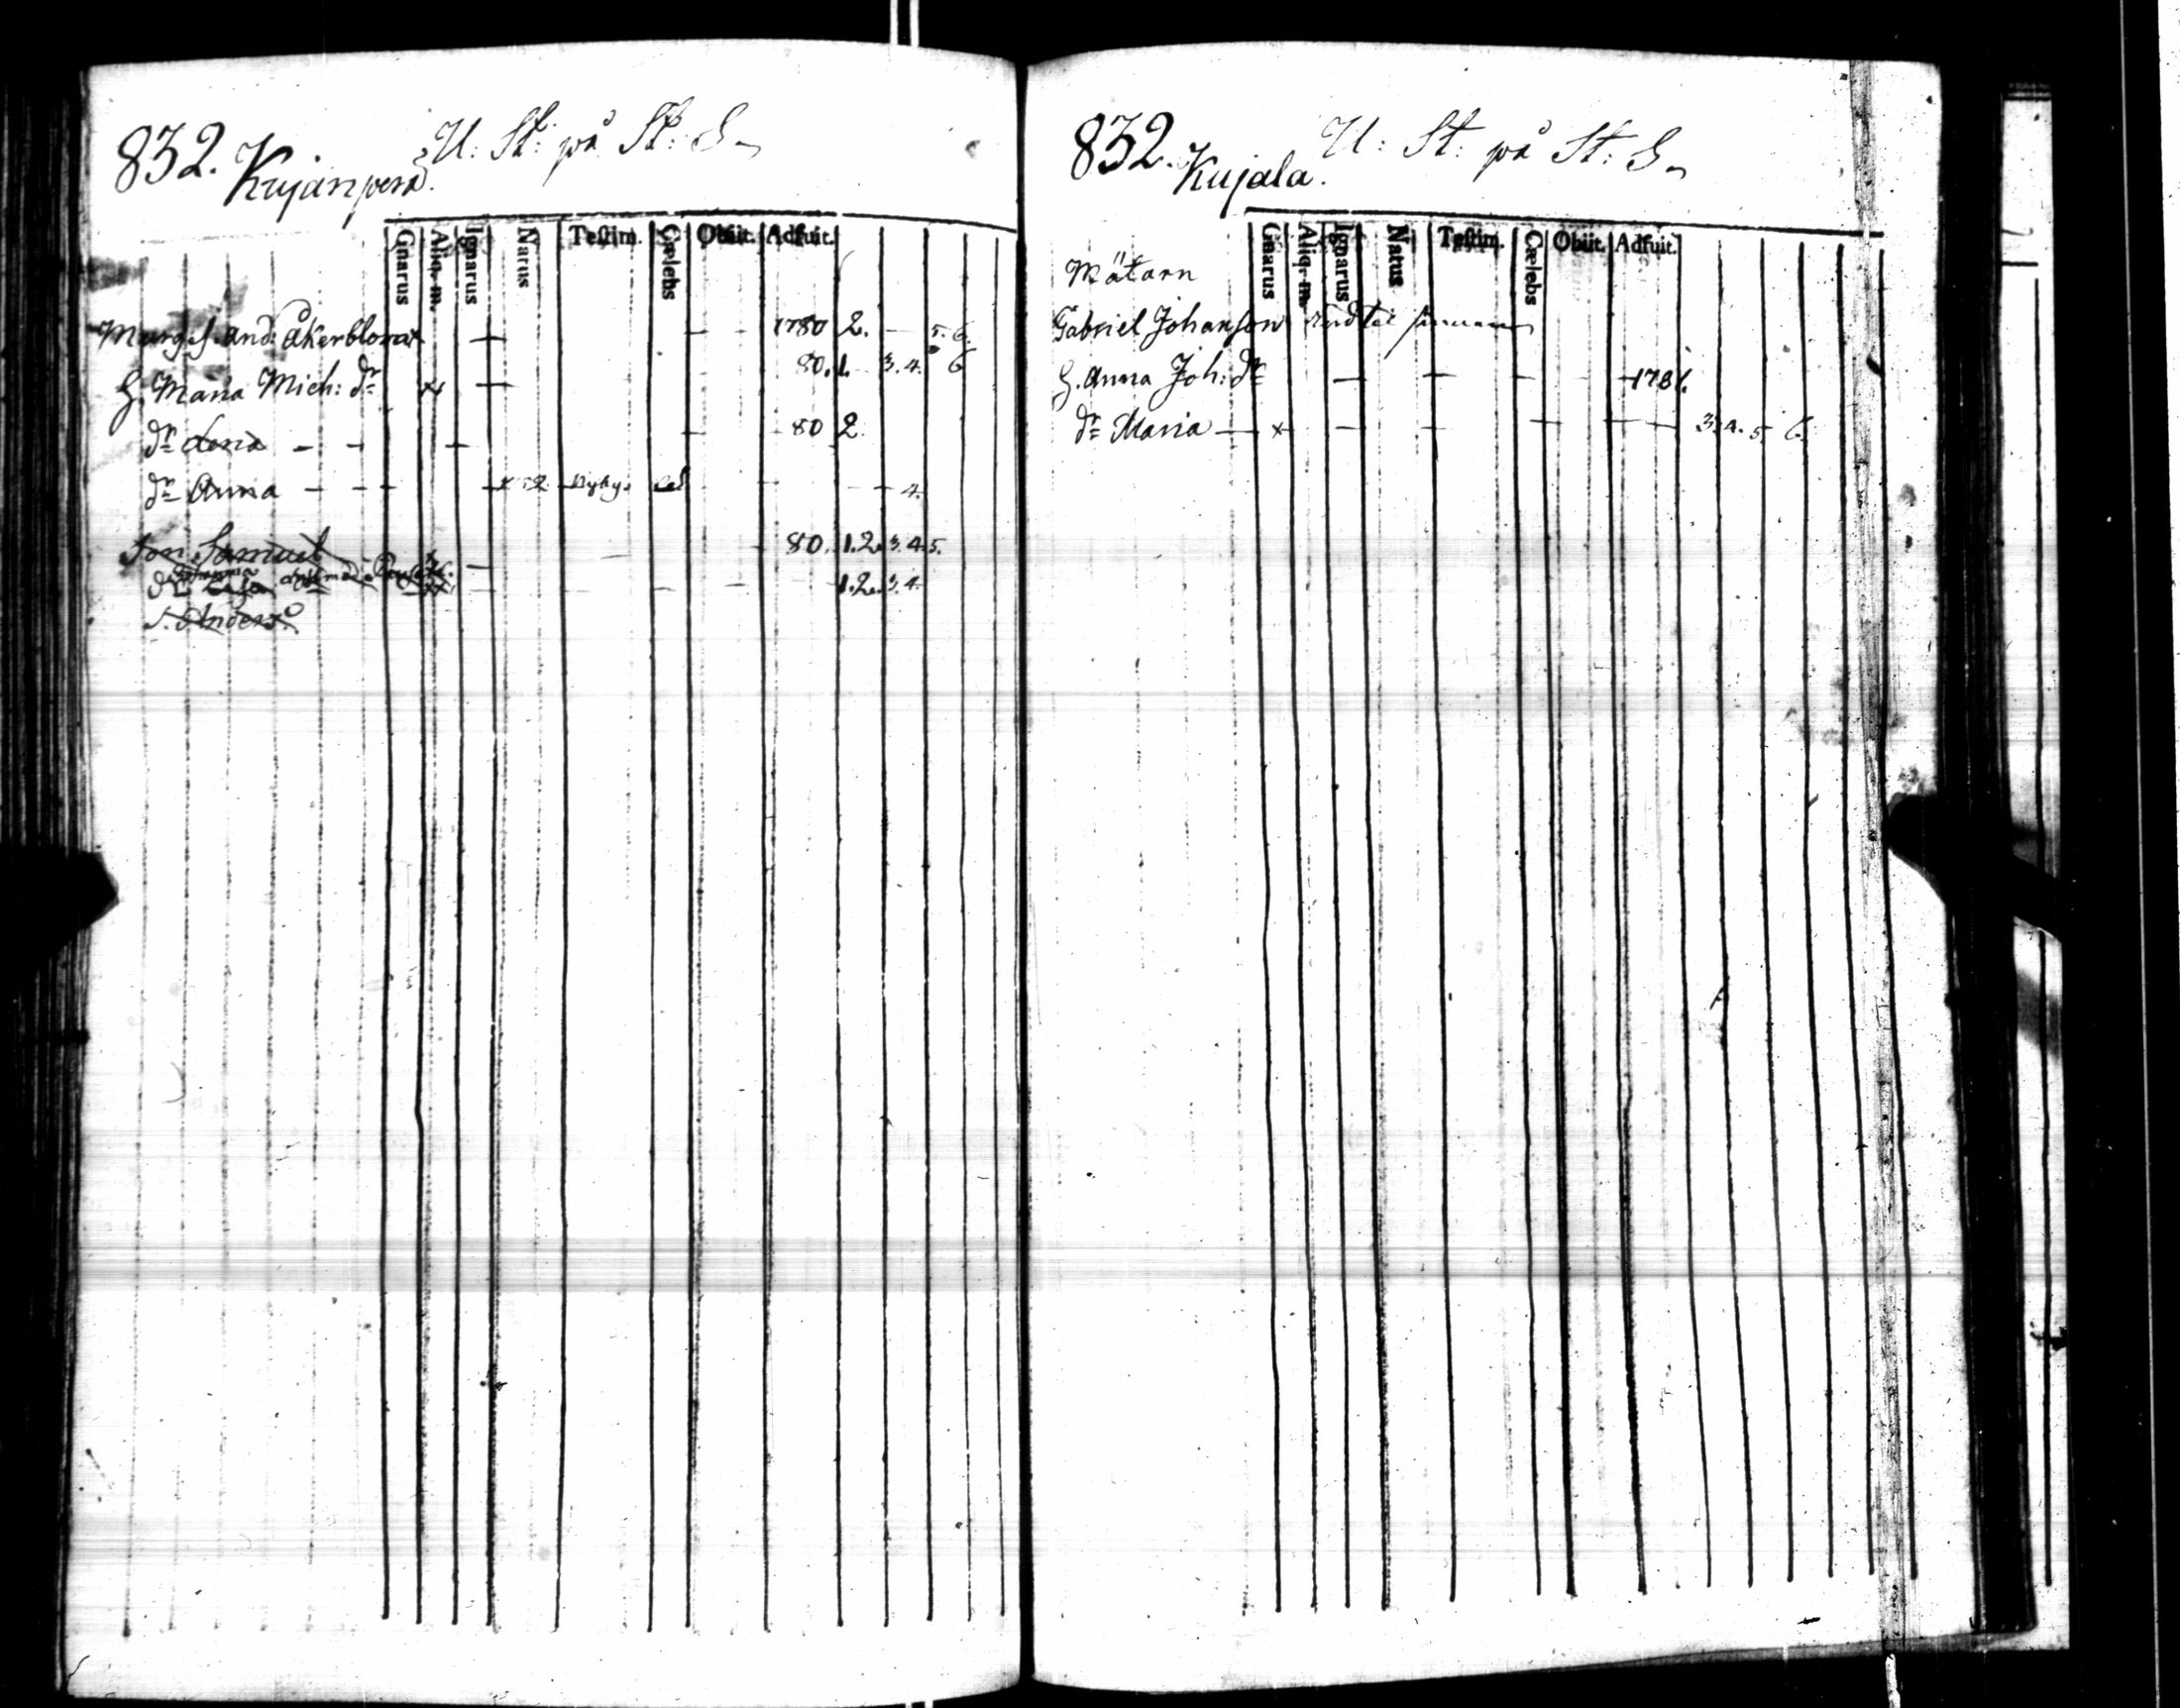 832. U: St: på St: S
Kujanperä.
Gnarus Aliq. m. Ignarus Natus Teſtim. Cælebs Obiit. Adfuit.
And: Åkerblom x 1780 2. 5. 6.
H. Maria Mich: dr x 80. 1. 3. 4. 6
dr Lena 80 2
dr Anna 4.
Son Samuel 80. 1. 2. 3. 4 5.
dr 1. 2. 3. 4
S. Anders
832. U: St: på St: S
Kujala.
Gnarus Aliq. m. Ignarus Natus Teſtim. Cælebs Obiit. Adfuit.
Mätarn
Gabriel Johanſon
H. Anna Joh: dr 1781.
dr Maria x 3. 4. 5 6.